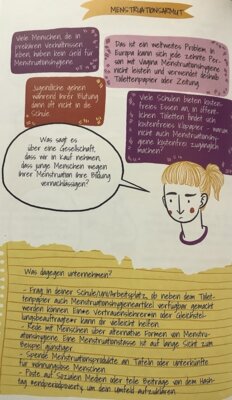 MENSTRUATIONSARMUT
Viele Menschen, die in
prekären Verhältnissen
leben, haben kein Geld für
Menstruationshygiene.
Das ist ein weltweites Problem. In
Europa kann sich jede zehnte Per-
son mit Vagina Menstruationshygiene
nicht leisten und verwendet deshalb
Toilettenpapier oder Zeitung.
Jugendliche gehen
während ihrer Blutung
dann oft nicht in die
Schule.
Viele Schulen bieten kosten-
freies Essen an, in öffent-
lichen Toiletten findet sich
kostenfreies Klopapier - warum
nicht auch Menstruationshy-
giene kostenfrei zugänglich
machen?
Was sagt es
über eine Gesellschaft,
dass wir in Kauf nehmen,
dass junge Menschen wegen
ihrer Menstruation ihre Bildung
vernachlässigen?
Was dagegen unternehmen?
- Frag in deiner Schule/Uni/Arbeitsplatz, ob neben dem Toilet-
tenpapier auch Menstruationshygieneartikel verfügbar gemacht
werden können. Ein*e Vertrauenslehrer*in oder Gleichstel-
lungsbeauftragte*r kann dir vielleicht helfen.
- Rede mit Menschen über alternative Formen von Menstru-
ationshygiene. Eine Menstruationstasse ist auf lange Sicht zum
Beispiel günstiger.
- Spende Menstruationsprodukte an Tafeln oder Unterkünfte
für wohnungslose Menschen.
- Poste auf Sozialen Medien oder teile Beiträge von dem Hash-
tag #endperiodpoverty, um dein Umfeld aufzuklären.